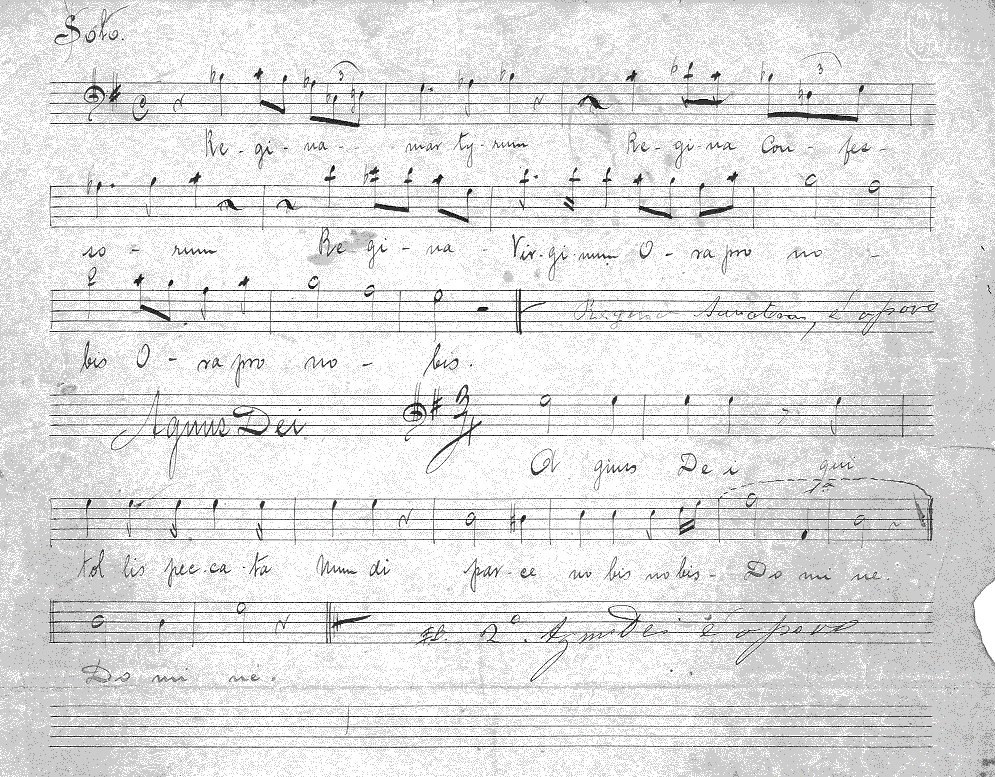 Solo.
3 3
Re - gi - na - - mar ty - rum Re - gi - na Con - fes -
so - rum Re gi - na - Vir - gi - num O - ra pro no -
2
é o povo
bis O - ra pro no - bis.
Agnus Dei 3 4
A gnus De i qui
tol lis pec - ca - ta mun di par - ce no bis no bis - Do mi ne.
2º. Agnus Dei é o povo
Do mi ne.